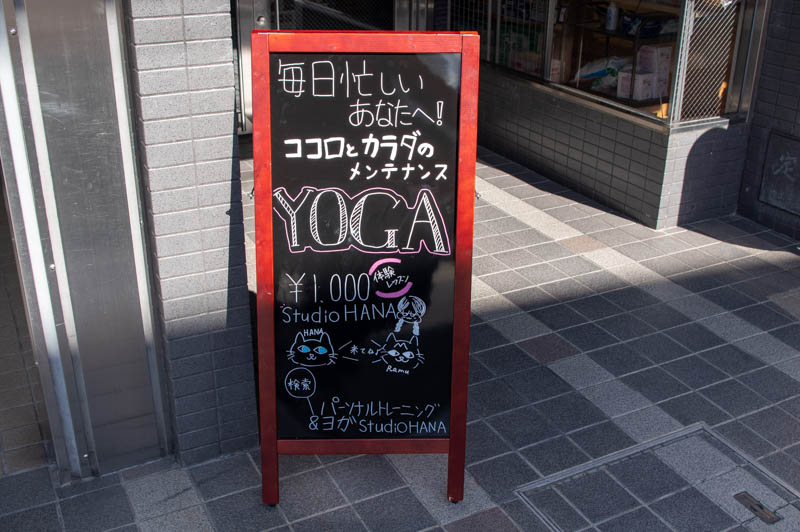 毎日忙しい
あなたへ!
ココロとカラダの
メンテナンス
YOGA
¥1.000
体験
レッスン
StudioHANA
HANA
来てね♪
Ramu
検索
パーソナルトレーニング
&ヨガ StudioHANA
定